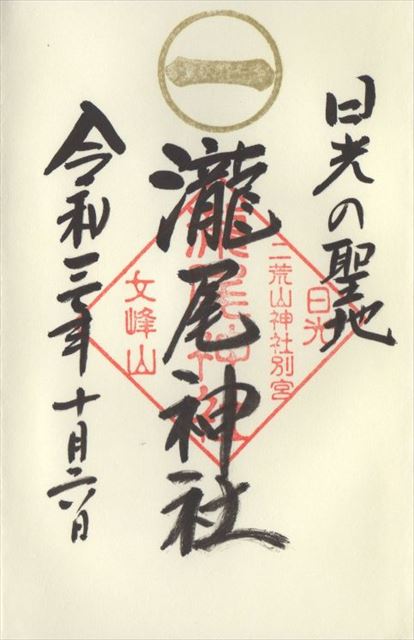 日光の聖地
日光
二荒山神社別宮
瀧尾神社
瀧尾神社
女峰山
令和三年十月二六日